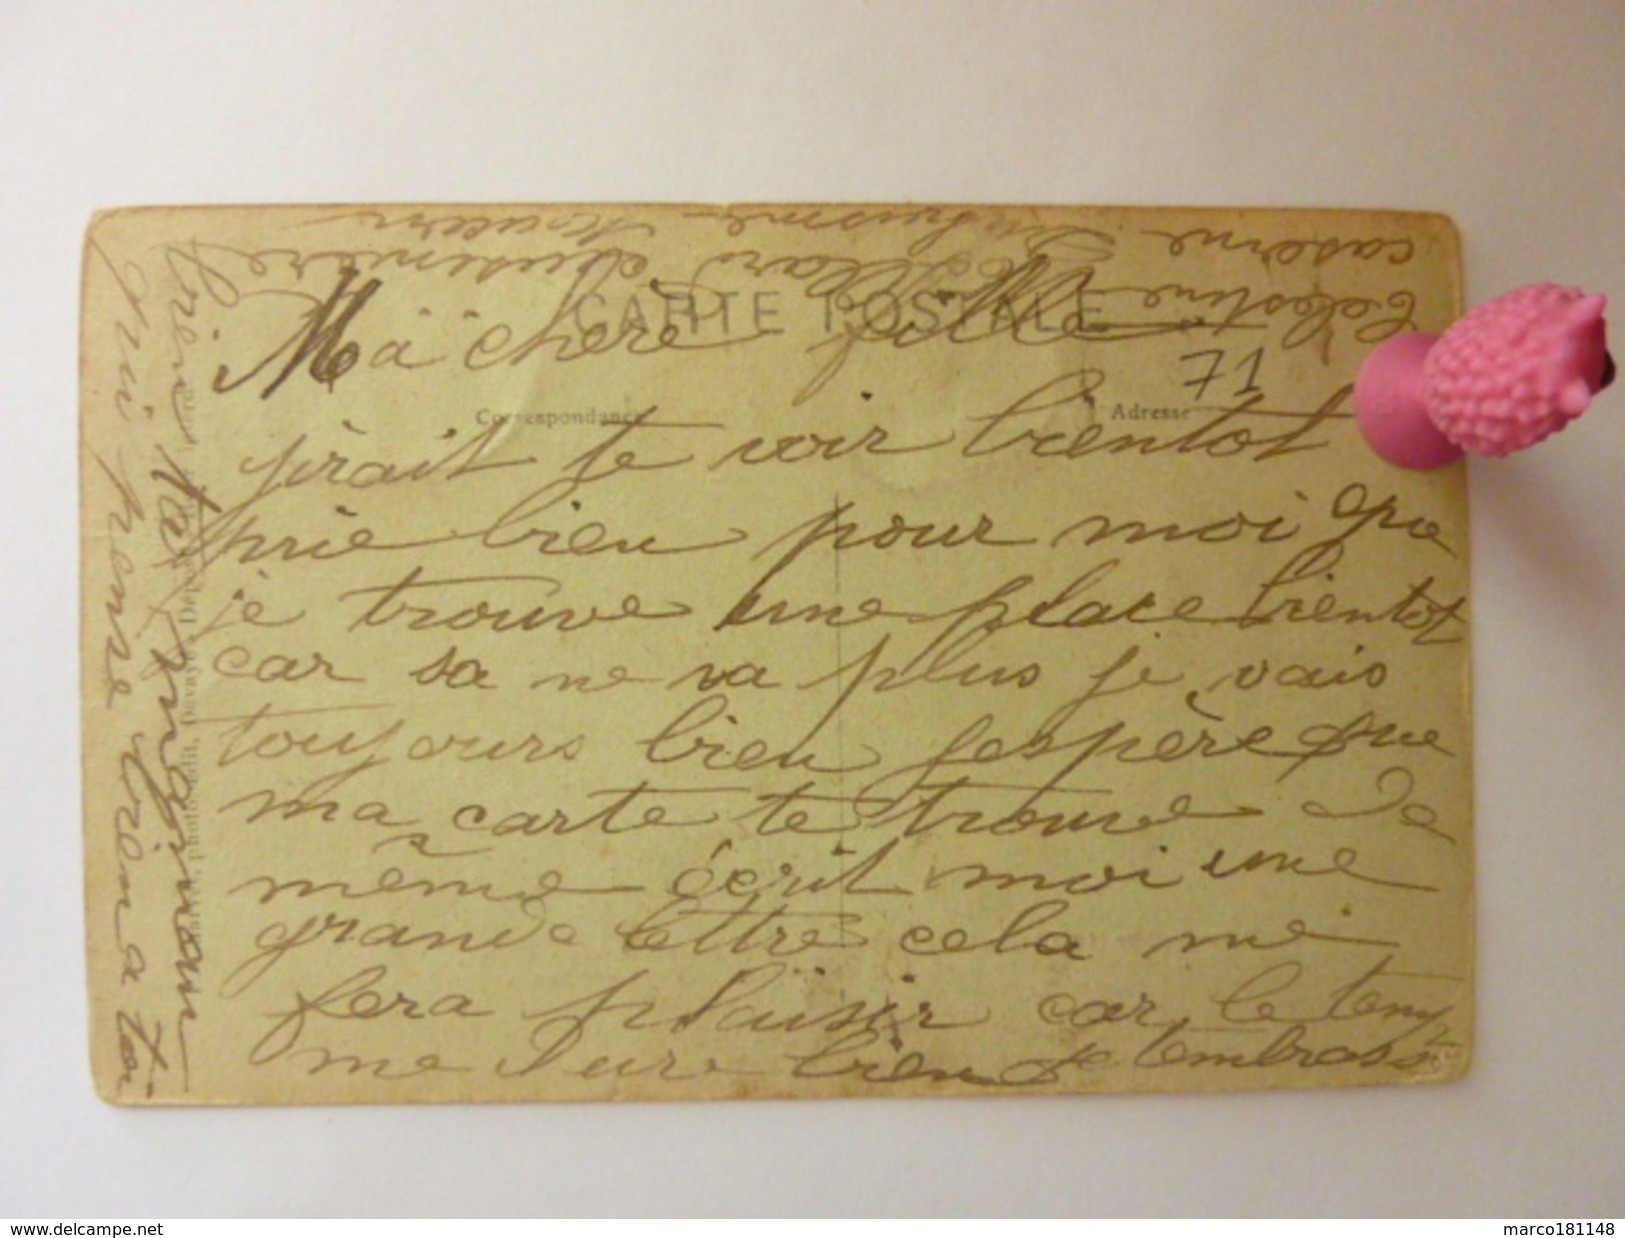 CARTE POSTALE
Correspondance
Adresse
71
Ma chère fille
j'irait te voir bientot
prie bien pour moi que
je trouve une place bientot
car sa ne va plus je vais
toujours bien jespère que
ma carte te trouve de
même écrit moi une
grande lettre cela me
fera plaisir car le temp
me dure bien je tembrass
bien ta maman
qui pense bien a toi
Célestine cuisinière
caserne
www.delcampe.net
marco181148